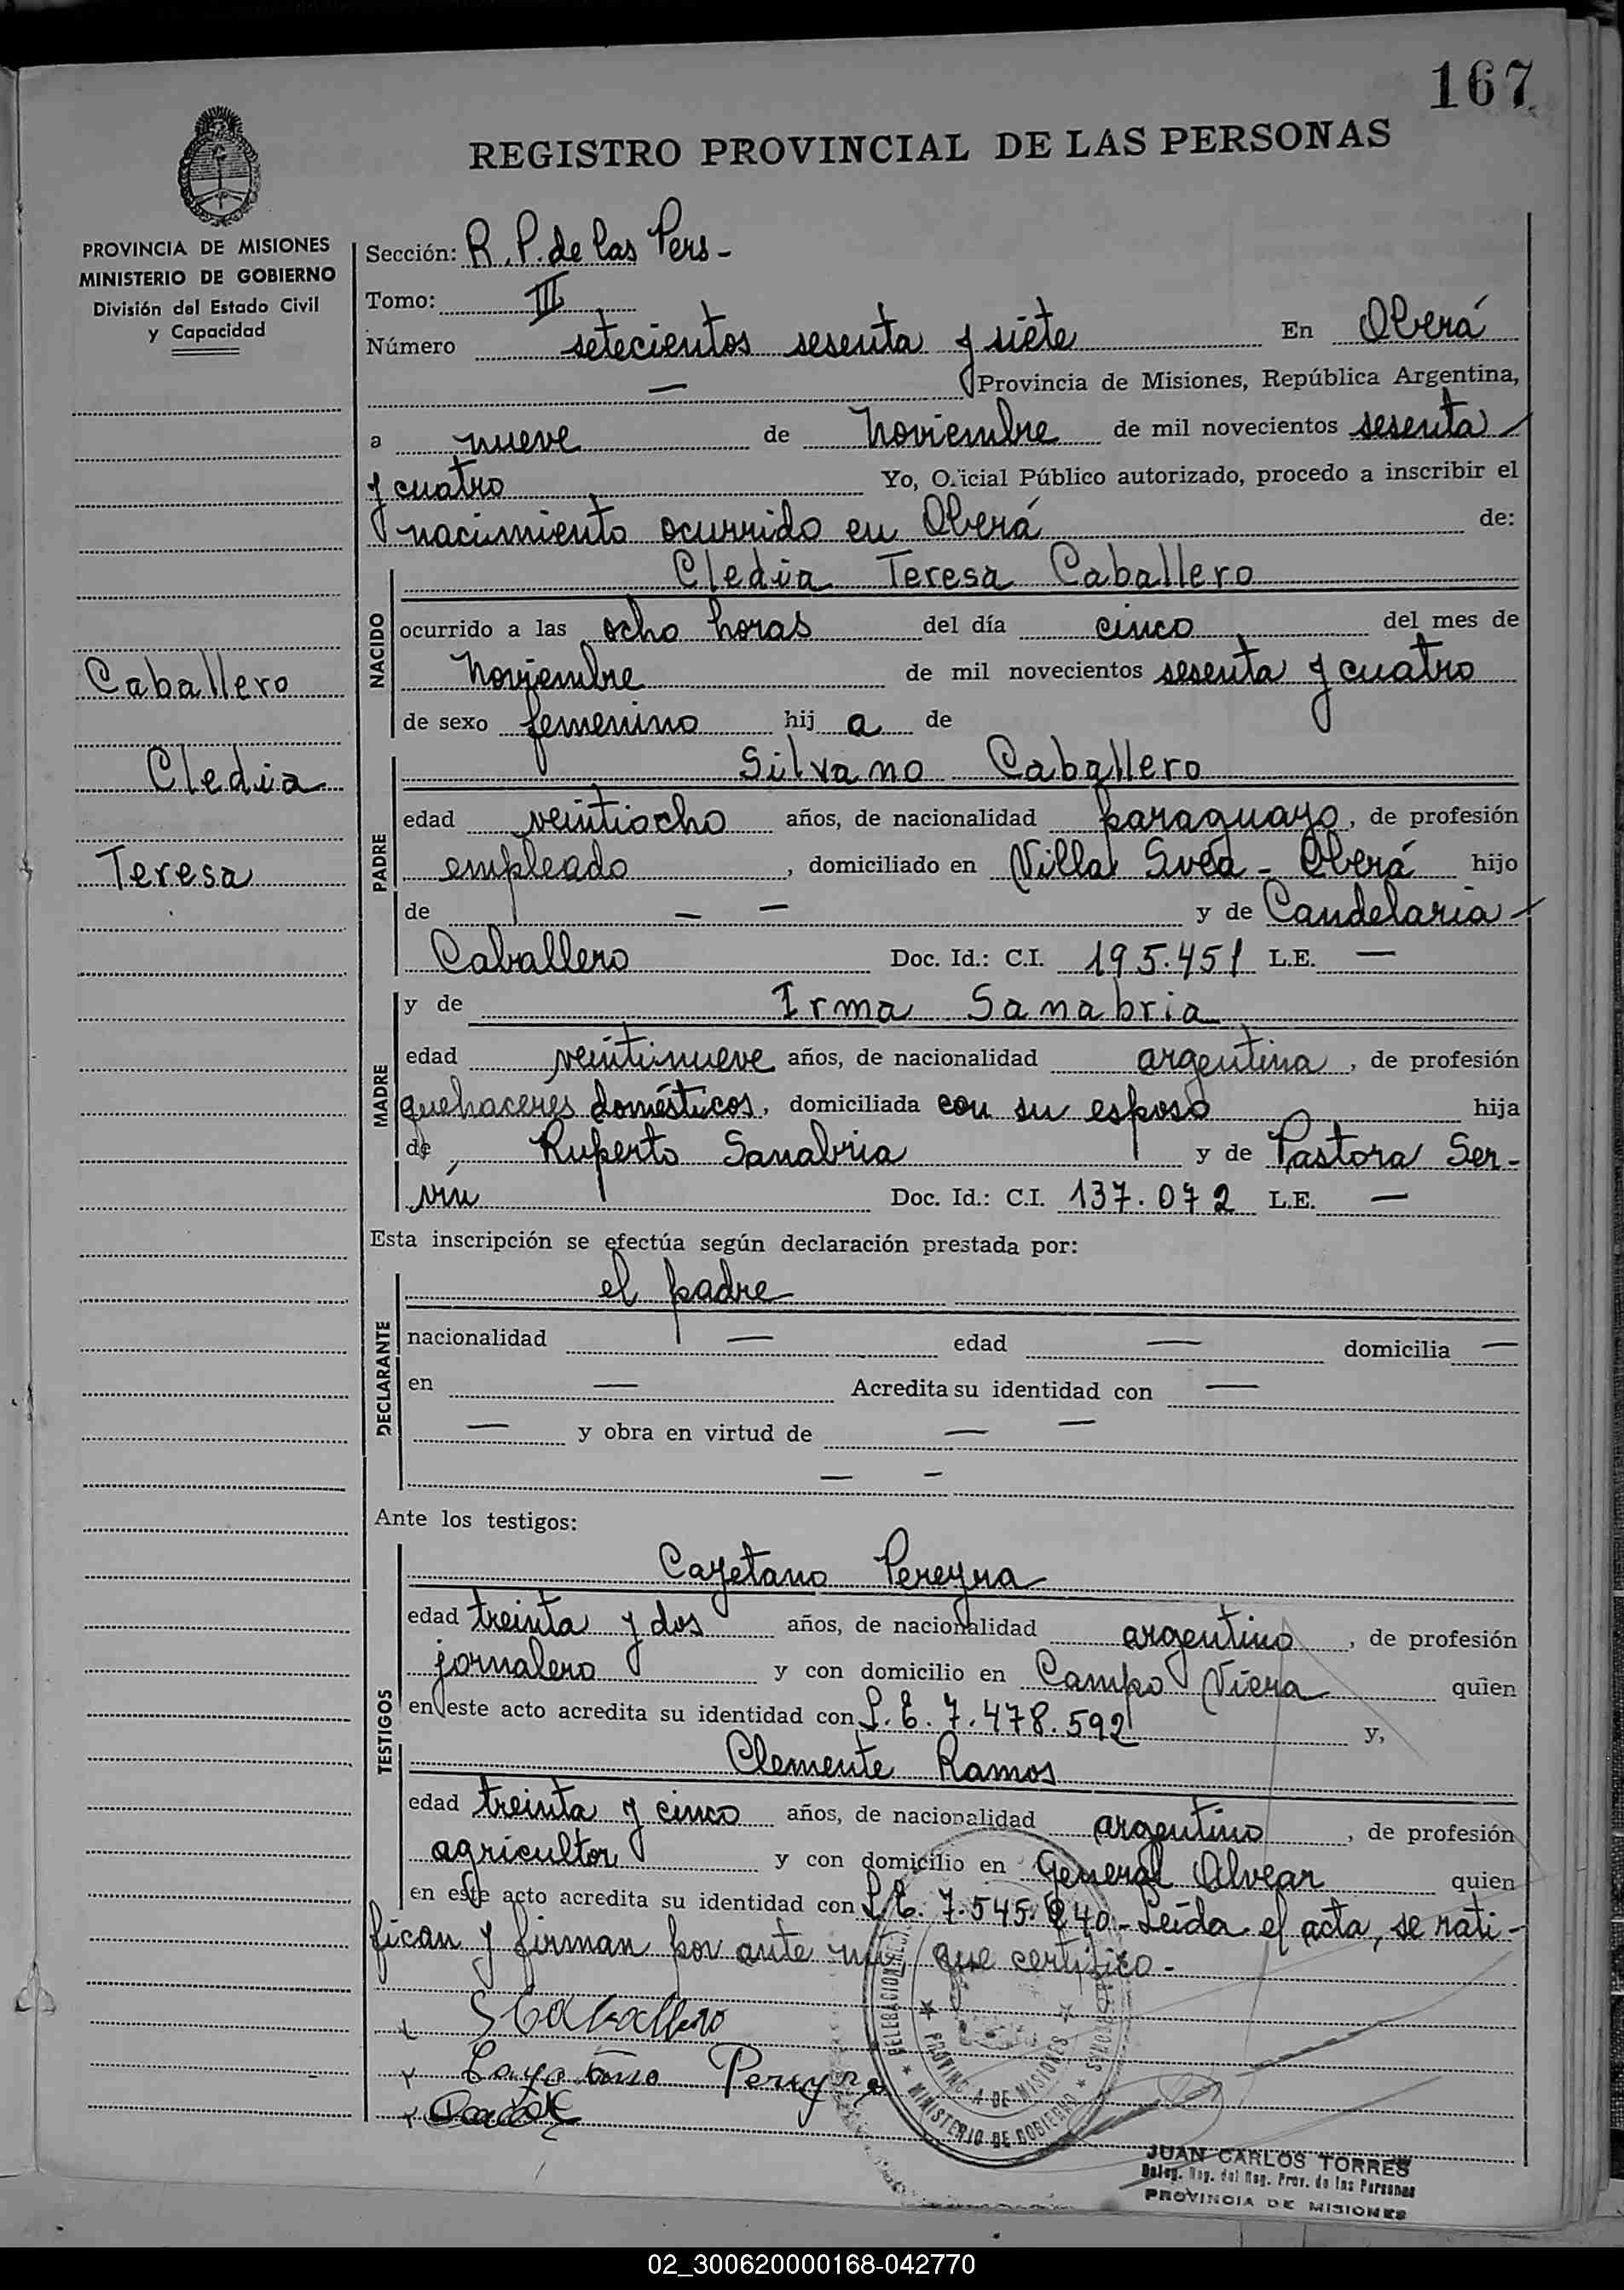 167
REGISTRO PROVINCIAL DE LAS PERSONAS
PROVINCIA DE MISIONES
MINISTERIO DE GOBIERNO
División del Estado Civil
y Capacidad
Caballero
Cledia
Teresa
Sección: R. P. de las Pers-
Tomo: III
Número setecientos sesenta y siete En Oberá
— Provincia de Misiones, República Argentina,
a nueve de Noviembre de mil novecientos sesenta
y cuatro Yo, Oficial Público autorizado, procedo a inscribir el
nacimiento ocurrido en Oberá de:
NACIDO
Cledia Teresa Caballero
ocurrido a las ocho horas del día cinco del mes de
Noviembre de mil novecientos sesenta y cuatro
de sexo femenino hij a de
PADRE
Silvano Caballero
edad veintiocho años, de nacionalidad paraguayo, de profesión
empleado, domiciliado en Villa Svea - Oberá hijo
de — — y de Candelaria
Caballero Doc. Id.: C.I. 195.451 L.E. —
MADRE
y de Irma Sanabria
edad veintinueve años, de nacionalidad argentina, de profesión
quehaceres domésticos, domiciliada con su esposo hija
de Ruperto Sanabria y de Pastora Ser-
vín Doc. Id.: C.I. 137.072 L.E. —
Esta inscripción se efectúa según declaración prestada por:
DECLARANTE
el padre
nacionalidad — edad — domicilia —
en — Acredita su identidad con —
— y obra en virtud de — —
— —
Ante los testigos:
TESTIGOS
Cayetano Pereyra
edad treinta y dos años, de nacionalidad argentino, de profesión
jornalero y con domicilio en Campo Viera quien
en este acto acredita su identidad con L.E. 7.478.592 y,
Clemente Ramos
edad treinta y cinco años, de nacionalidad argentino, de profesión
agricultor y con domicilio en General Alvear quien
en este acto acredita su identidad con L.E. 7.545.240.- Leída el acta, se rati-
fican y firman por ante mí que certifico.-
S Caballero
Cayetano Pereyra
MINISTERIO DE GOBIERNO
PROVINCIA DE MISIONES
JUAN CARLOS TORRES
Deleg. Reg. del Reg. Prov. de las Personas
PROVINCIA DE MISIONES
02_300620000168-042770